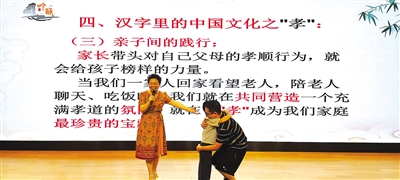 四、汉字里的中国文化之"孝"：
（三）亲子间的践行：
家长带头对自己父母的孝顺行为，就
会给孩子榜样的力量。
当我们一 人回家看望老人，陪老人
聊天、吃饭 我们就在共同营造一个充
满孝道的氛 就 "孝"成为我们家庭
最珍贵的宝